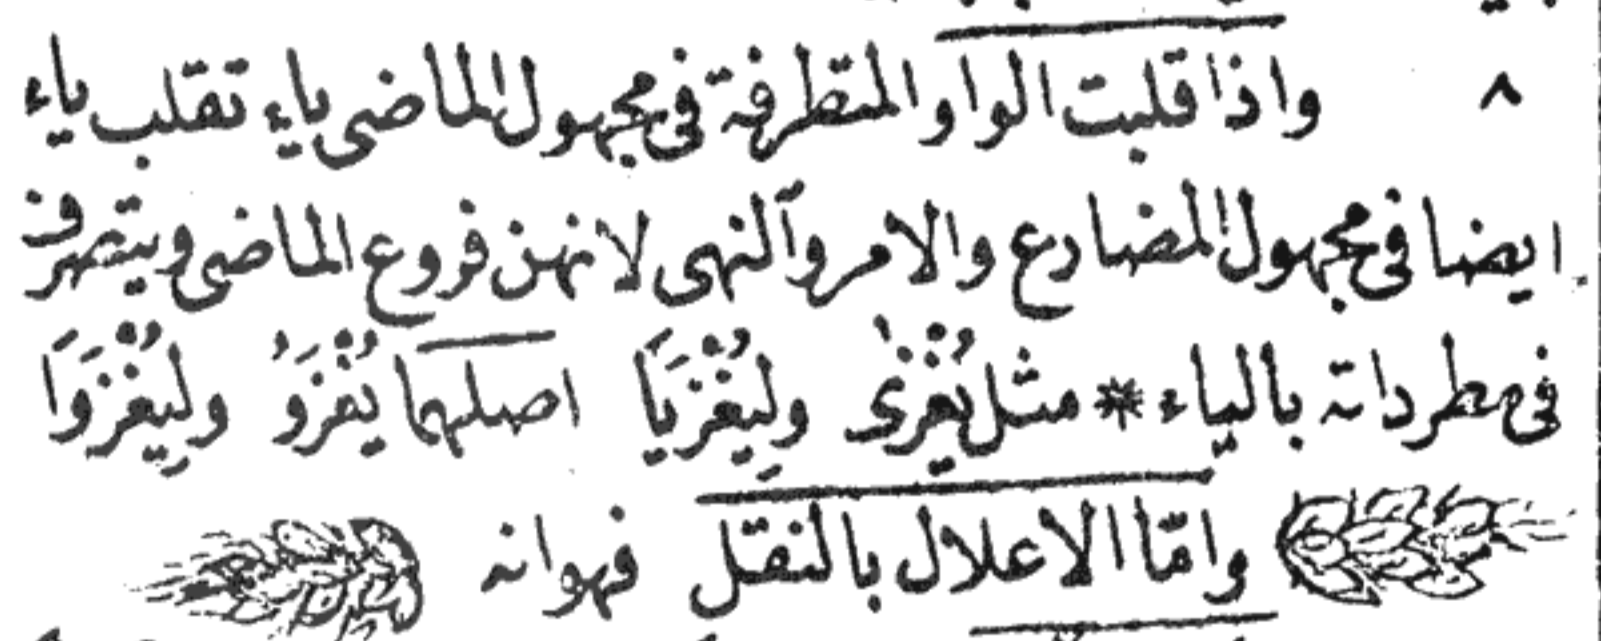 ٨ واذا قلبت الواو المتطرفة فى مجهول الماضى ياء تقلب ياء
ايضا فى مجهول المضارع والامر والنهى لانهن فروع الماضى ويتصرف
فى مطرداته بالياء * مثل يُغْزٰى ولِيُغْزَيَا اصلهما يُغْزَوُ ولِيُغْزَوَا
وامّا الاعلال بالنقل فهو انه